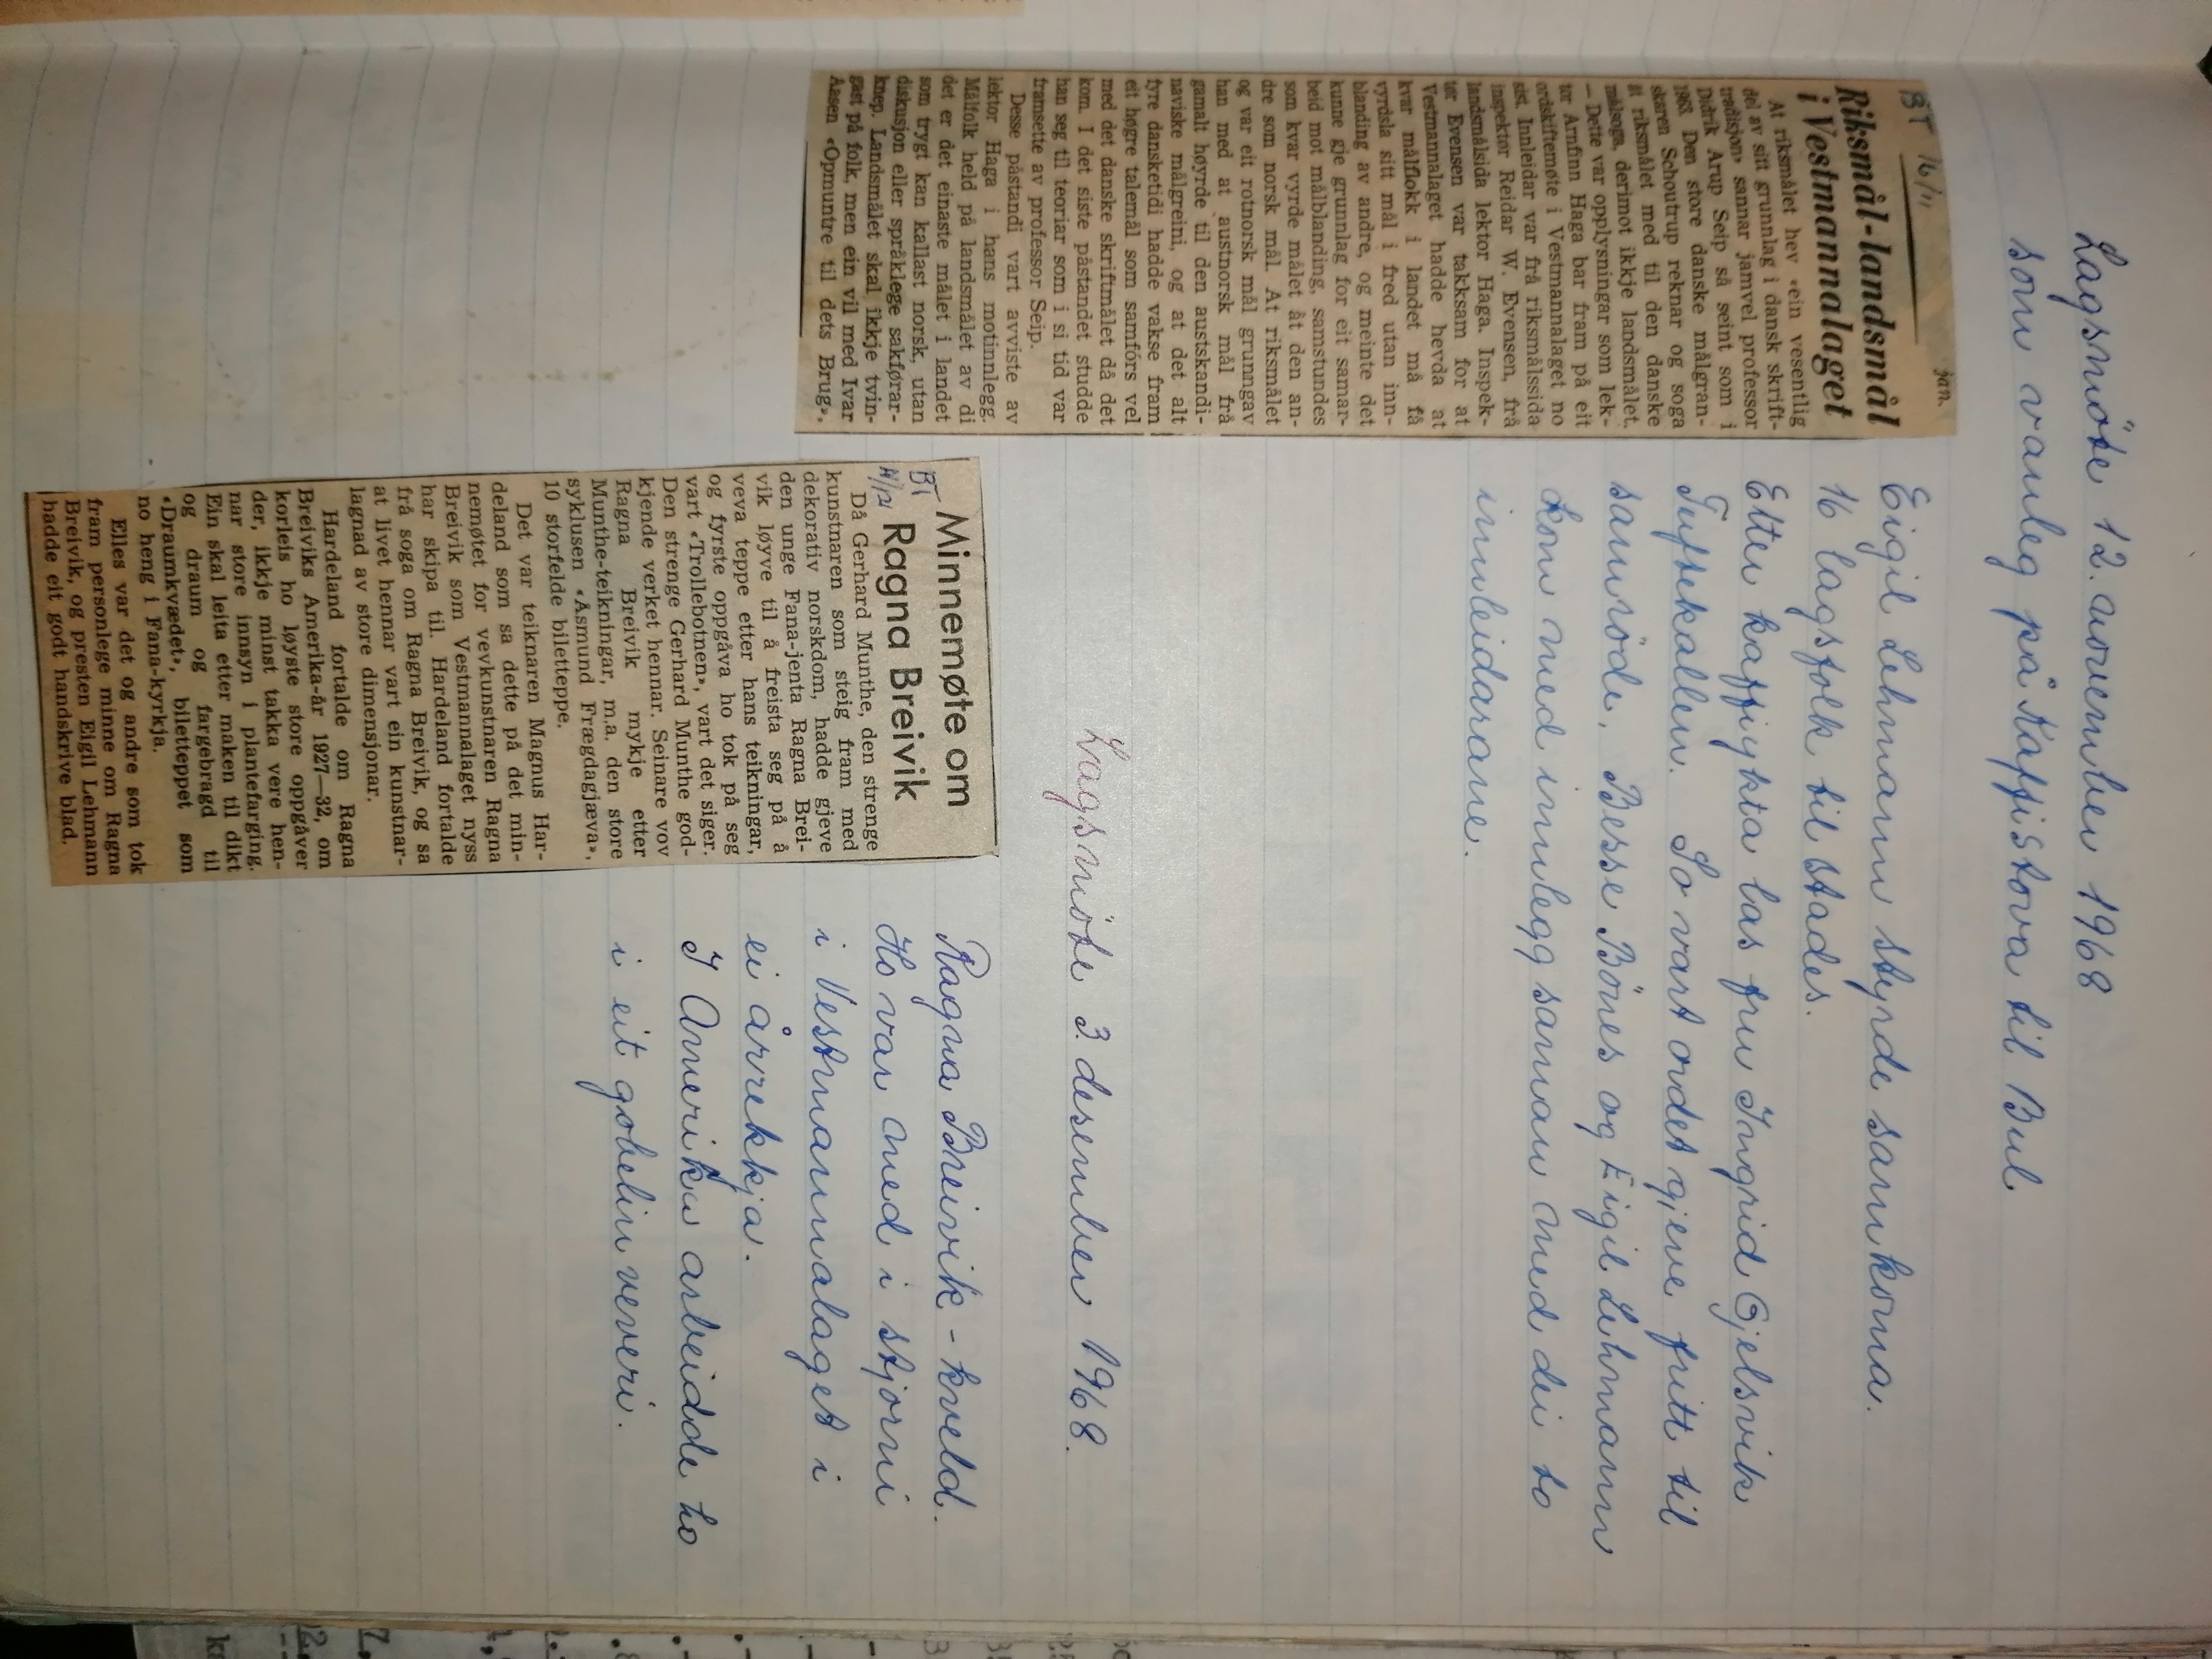 Lagsmöte 12. november 1968
som vanleg på Kaffistova til Bul
BT 16/11
jam.
Riksmål-landsmål
i Vestmannalaget
At riksmålet hev «ein vesentlig
del av sitt grunnlag i dansk skrift-
tradisjon» sannar jamvel professor
Didrik Arup Seip så seint som i
1963. Den store danske målgran-
skaren Schoutrup reknar og soga
åt riksmålet med til den danske
målsoga, derimot ikkje landsmålet.
— Dette var opplysningar som lek-
tor Arnfinn Haga bar fram på eit
ordskiftemøte i Vestmannalaget no
sist. Innleidar var frå riksmålssida
inspektør Reidar W. Evensen, frå
landsmålsida lektor Haga. Inspek-
tør Evensen var takksam for at
Vestmannalaget hadde hevda at
kvar målflokk i landet må få
vyrdsla sitt mål i fred utan inn-
blanding av andre, og meinte det
kunne gje grunnlag for eit samar-
beid mot målblanding, samstundes
som kvar vyrde målet åt den an-
dre som norsk mål. At riksmålet
og var eit rotnorsk mål grunngav
han med at austnorsk mål frå
gamalt høyrde til den austskandi-
naviske målgreini, og at det alt
fyre dansketidi hadde vakse fram
eit høgre talemål som samfórs vel
med det danske skriftmålet då det
kom. I det siste påstandet studde
han seg til teoriar som i si tid var
framsette av professor Seip.
Desse påstandi vart avviste av
lektor Haga i hans motinnlegg.
Målfolk held på landsmålet av di
det er det einaste målet i landet
som trygt kan kallast norsk, utan
diskusjon eller språklege sakførar-
knep. Landsmålet skal ikkje tvin-
gast på folk, men ein vil med Ivar
Aasen «Opmuntre til dets Brug».
Eigil Lehmann styrde samkoma.
16 lagsfolk til stades.
Etter kaffiykta las fru Ingrid Gjelsvik
Tuftekallen. So vart ordet gjeve fritt til
samröde. Besse Bönes og Eigil Lehmann
kom med innlegg saman med dei to
innleidarane.
Lagsmöte 3. desember 1968.
BT
Minnemøte om
Ragna Breivik
Då Gerhard Munthe, den strenge
kunstnaren som steig fram med
dekorativ norskdom, hadde gjeve
den unge Fana-jenta Ragna Brei-
vik løyve til å freista seg på å
veva teppe etter hans teikningar,
og fyrste oppgåva ho tok på seg
vart «Trollebotnen», vart det siger.
Den strenge Gerhard Munthe god-
kjende verket hennar. Seinare vov
Ragna Breivik mykje etter
Munthe-teikningar, m.a. den store
syklusen «Åsmund Frægdagjæva»,
10 storfelde biletteppe.
Det var teiknaren Magnus Har-
deland som sa dette på det min-
nemøtet for vevkunstnaren Ragna
Breivik som Vestmannalaget nyss
har skipa til. Hardeland fortalde
frå soga om Ragna Breivik, og sa
at livet hennar vart ein kunstnar-
lagnad av store dimensjonar.
Hardeland fortalde om Ragna
Breiviks Amerika-år 1927—32, om
korleis ho løyste store oppgåver
der, ikkje minst takka vere hen-
nar store innsyn i plantefarging.
Ein skal leita etter maken til dikt
og draum og fargebragd til
«Draumkvædet», biletteppet som
no heng i Fana-kyrkja.
Elles var det og andre som tok
fram personlege minne om Ragna
Breivik, og presten Eigil Lehmann
hadde eit godt handskrive blad.
Ragna Breivik - kveld.
Ho var med i stjorni
i Vestmannalaget i
ei årrekkja.
I Amerika arbeidde ho
i eit gobelin veveri.